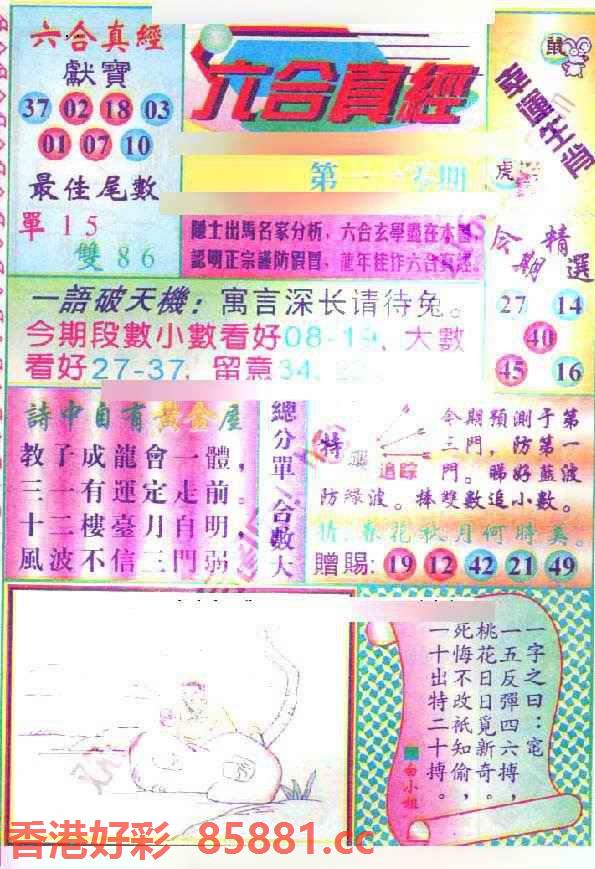 六合真經
獻寶
37 02 18 03
01 07 10
最佳尾數
單 1 5
雙 8 6
六合真經
第
期
鼠
虎
幸運生肖
今期精選
27 14
40
45 16
隱士出馬名家分析，六合玄學盡在本圖，
認明正宗謹防假冒，龍年佳作六合真經。
一語破天機：寓言深长请待兔。
今期段數小數看好08-19、大數
看好27-37，留意34,
詩中自有黃金屋
教子成龍會一體，
三一有運定走前。
十二樓臺月自明，
風波不信三門弱
總分單 合數大
特 追踪
今期預測于第
三門，防第一
門。睇好藍波
防綠波。捧雙數追小數。
猜：春花秋月何時美。
贈賜：19 12 42 21 49
一字之曰：寃
一五反彈四六搏，
桃花日日覓新奇。
死悔不改祇知偷，
一十出特二十搏。
白小姐
香港好彩 85881.cc